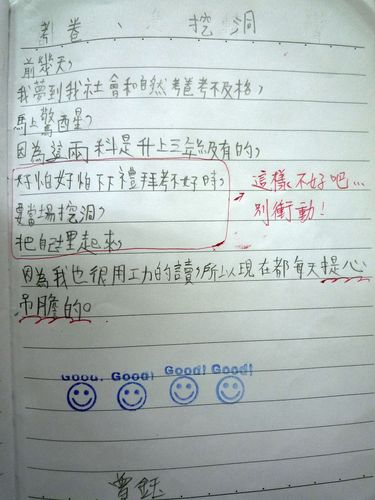 考卷、挖洞
前幾天，
我夢到我社會和自然考卷考不及格，
馬上驚醒，
因為這兩科是升上三年級有的，
好怕好怕下下禮拜考不好時，
要當場挖洞，
把自己埋起來，
這樣不好吧…
別衝動！
因為我也很用工力的讀，所以現在都每天提心
吊膽的。
Good! Good! Good! Good!
曾鈺